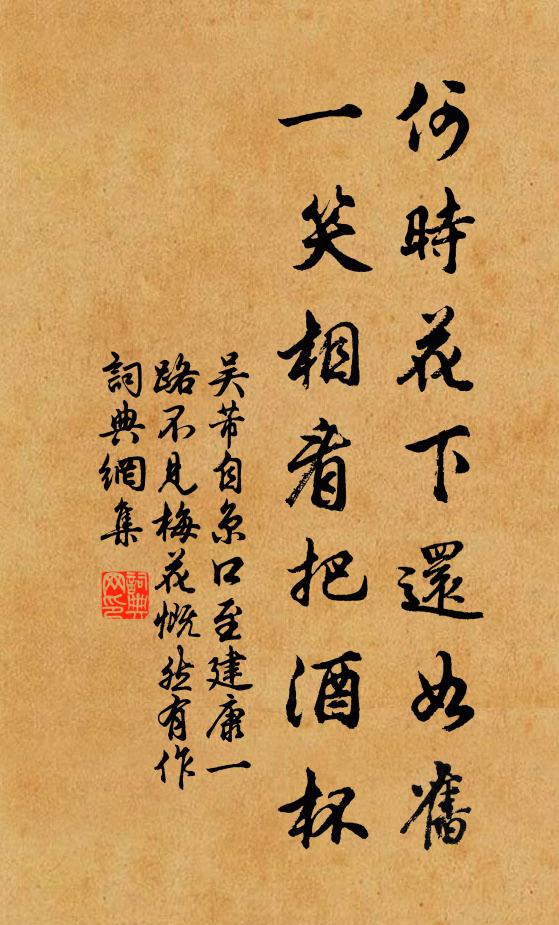 何時花下還如舊
一笑相看把酒杯
吳芾自京口至建康一
路不見梅花慨然有作
詞典網集
詞典
网印